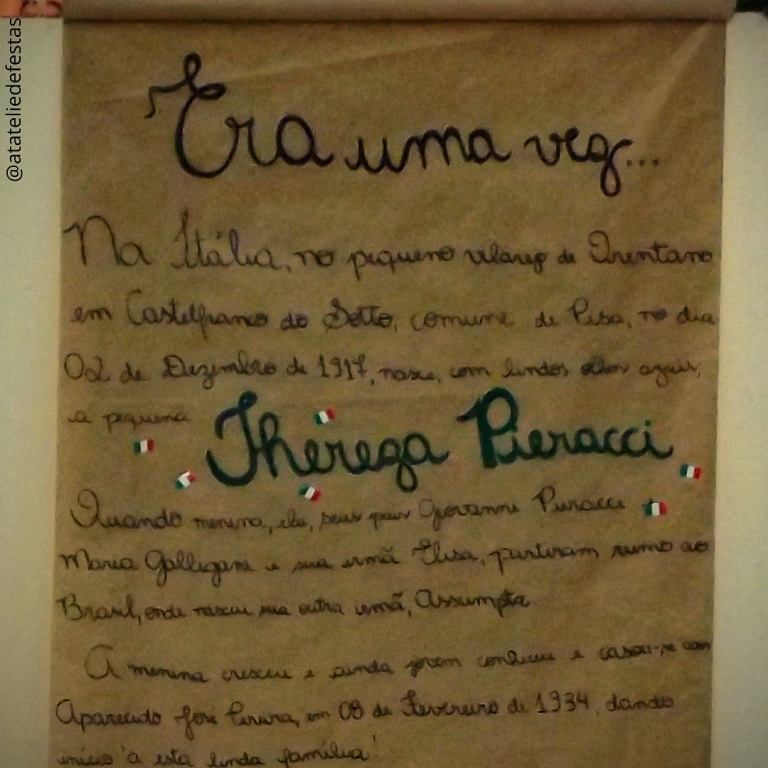 @atateliedefestas
Era uma vez...
Na Itália, no pequeno vilarejo de Orentano
em Castelfranco do Sotto, comune de Pisa, no dia
02 de Dezembro de 1917, nasce, com lindos olhos azuis,
a pequena
Thereza Pieracci
Quando menina, ela, seus pais Giovanni Pieracci
Maria Galligani e sua irmã Elisa, partiram rumo ao
Brasil, onde nasceu sua outra irmã, Assumpta.
A menina cresceu e ainda jovem conheceu e casou-se com
Aparecido José Pereira, em 08 de Fevereiro de 1934, dando
início à esta linda família!